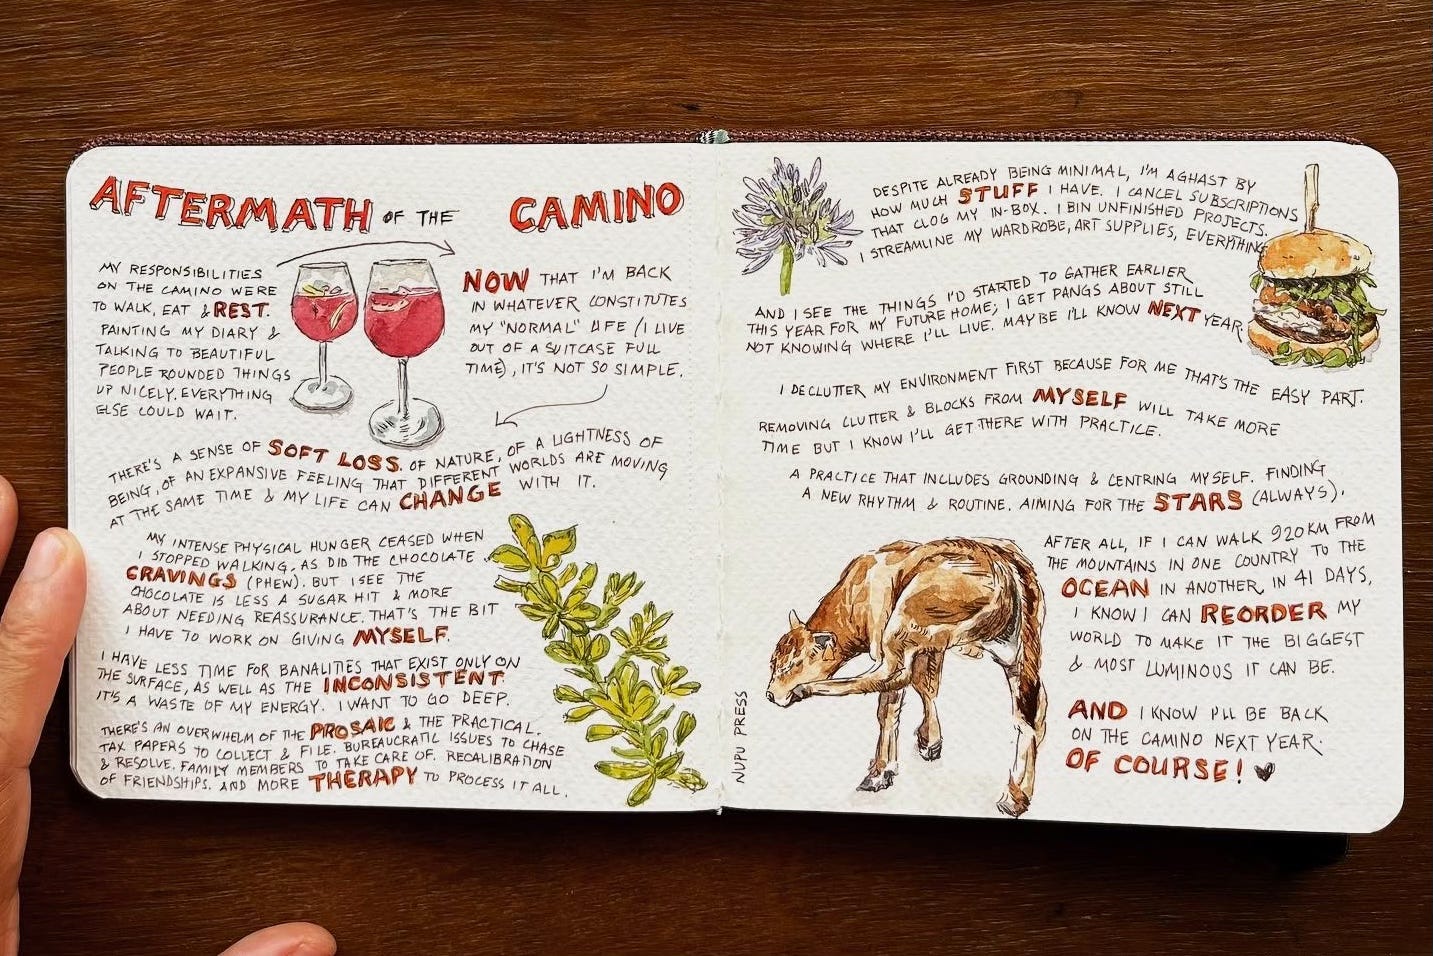 AFTERMATH OF THE CAMINO
MY RESPONSIBILITIES
ON THE CAMINO WERE
TO WALK, EAT & REST.
PAINTING MY DIARY &
TALKING TO BEAUTIFUL
PEOPLE ROUNDED THINGS
UP NICELY. EVERYTHING
ELSE COULD WAIT.
NOW THAT I'M BACK
IN WHATEVER CONSTITUTES
MY "NORMAL" LIFE (I LIVE
OUT OF A SUITCASE FULL
TIME), IT'S NOT SO SIMPLE.
THERE'S A SENSE OF SOFT LOSS. OF NATURE, OF A LIGHTNESS OF
BEING, OF AN EXPANSIVE FEELING THAT DIFFERENT WORLDS ARE MOVING
AT THE SAME TIME & MY LIFE CAN CHANGE WITH IT.
MY INTENSE PHYSICAL HUNGER CEASED WHEN
I STOPPED WALKING, AS DID THE CHOCOLATE
CRAVINGS (PHEW). BUT I SEE THE
CHOCOLATE IS LESS A SUGAR HIT & MORE
ABOUT NEEDING REASSURANCE. THAT'S THE BIT
I HAVE TO WORK ON GIVING MYSELF.
I HAVE LESS TIME FOR BANALITIES THAT EXIST ONLY ON
THE SURFACE, AS WELL AS THE INCONSISTENT.
IT'S A WASTE OF MY ENERGY. I WANT TO GO DEEP.
THERE'S AN OVERWHELM OF THE PROSAIC & THE PRACTICAL.
TAX PAPERS TO COLLECT & FILE. BUREAUCRATIC ISSUES TO CHASE
& RESOLVE. FAMILY MEMBERS TO TAKE CARE OF. RECALIBRATION
OF FRIENDSHIPS. AND MORE THERAPY TO PROCESS IT ALL.
DESPITE ALREADY BEING MINIMAL, I'M AGHAST BY
HOW MUCH STUFF I HAVE. I CANCEL SUBSCRIPTIONS
THAT CLOG MY IN-BOX. I BIN UNFINISHED PROJECTS.
I STREAMLINE MY WARDROBE, ART SUPPLIES, EVERYTHING.
AND I SEE THE THINGS I'D STARTED TO GATHER EARLIER
THIS YEAR FOR MY FUTURE HOME; I GET PANGS ABOUT STILL
NOT KNOWING WHERE I'LL LIVE. MAYBE I'LL KNOW NEXT YEAR.
I DECLUTTER MY ENVIRONMENT FIRST BECAUSE FOR ME THAT'S THE EASY PART.
REMOVING CLUTTER & BLOCKS FROM MYSELF WILL TAKE MORE
TIME BUT I KNOW I'LL GET THERE WITH PRACTICE.
A PRACTICE THAT INCLUDES GROUNDING & CENTRING MYSELF. FINDING
A NEW RHYTHM & ROUTINE. AIMING FOR THE STARS (ALWAYS).
AFTER ALL, IF I CAN WALK 920KM FROM
THE MOUNTAINS IN ONE COUNTRY TO THE
OCEAN IN ANOTHER, IN 41 DAYS,
I KNOW I CAN REORDER MY
WORLD TO MAKE IT THE BIGGEST
& MOST LUMINOUS IT CAN BE.
AND I KNOW I'LL BE BACK
ON THE CAMINO NEXT YEAR.
OF COURSE!
NUPU PRESS